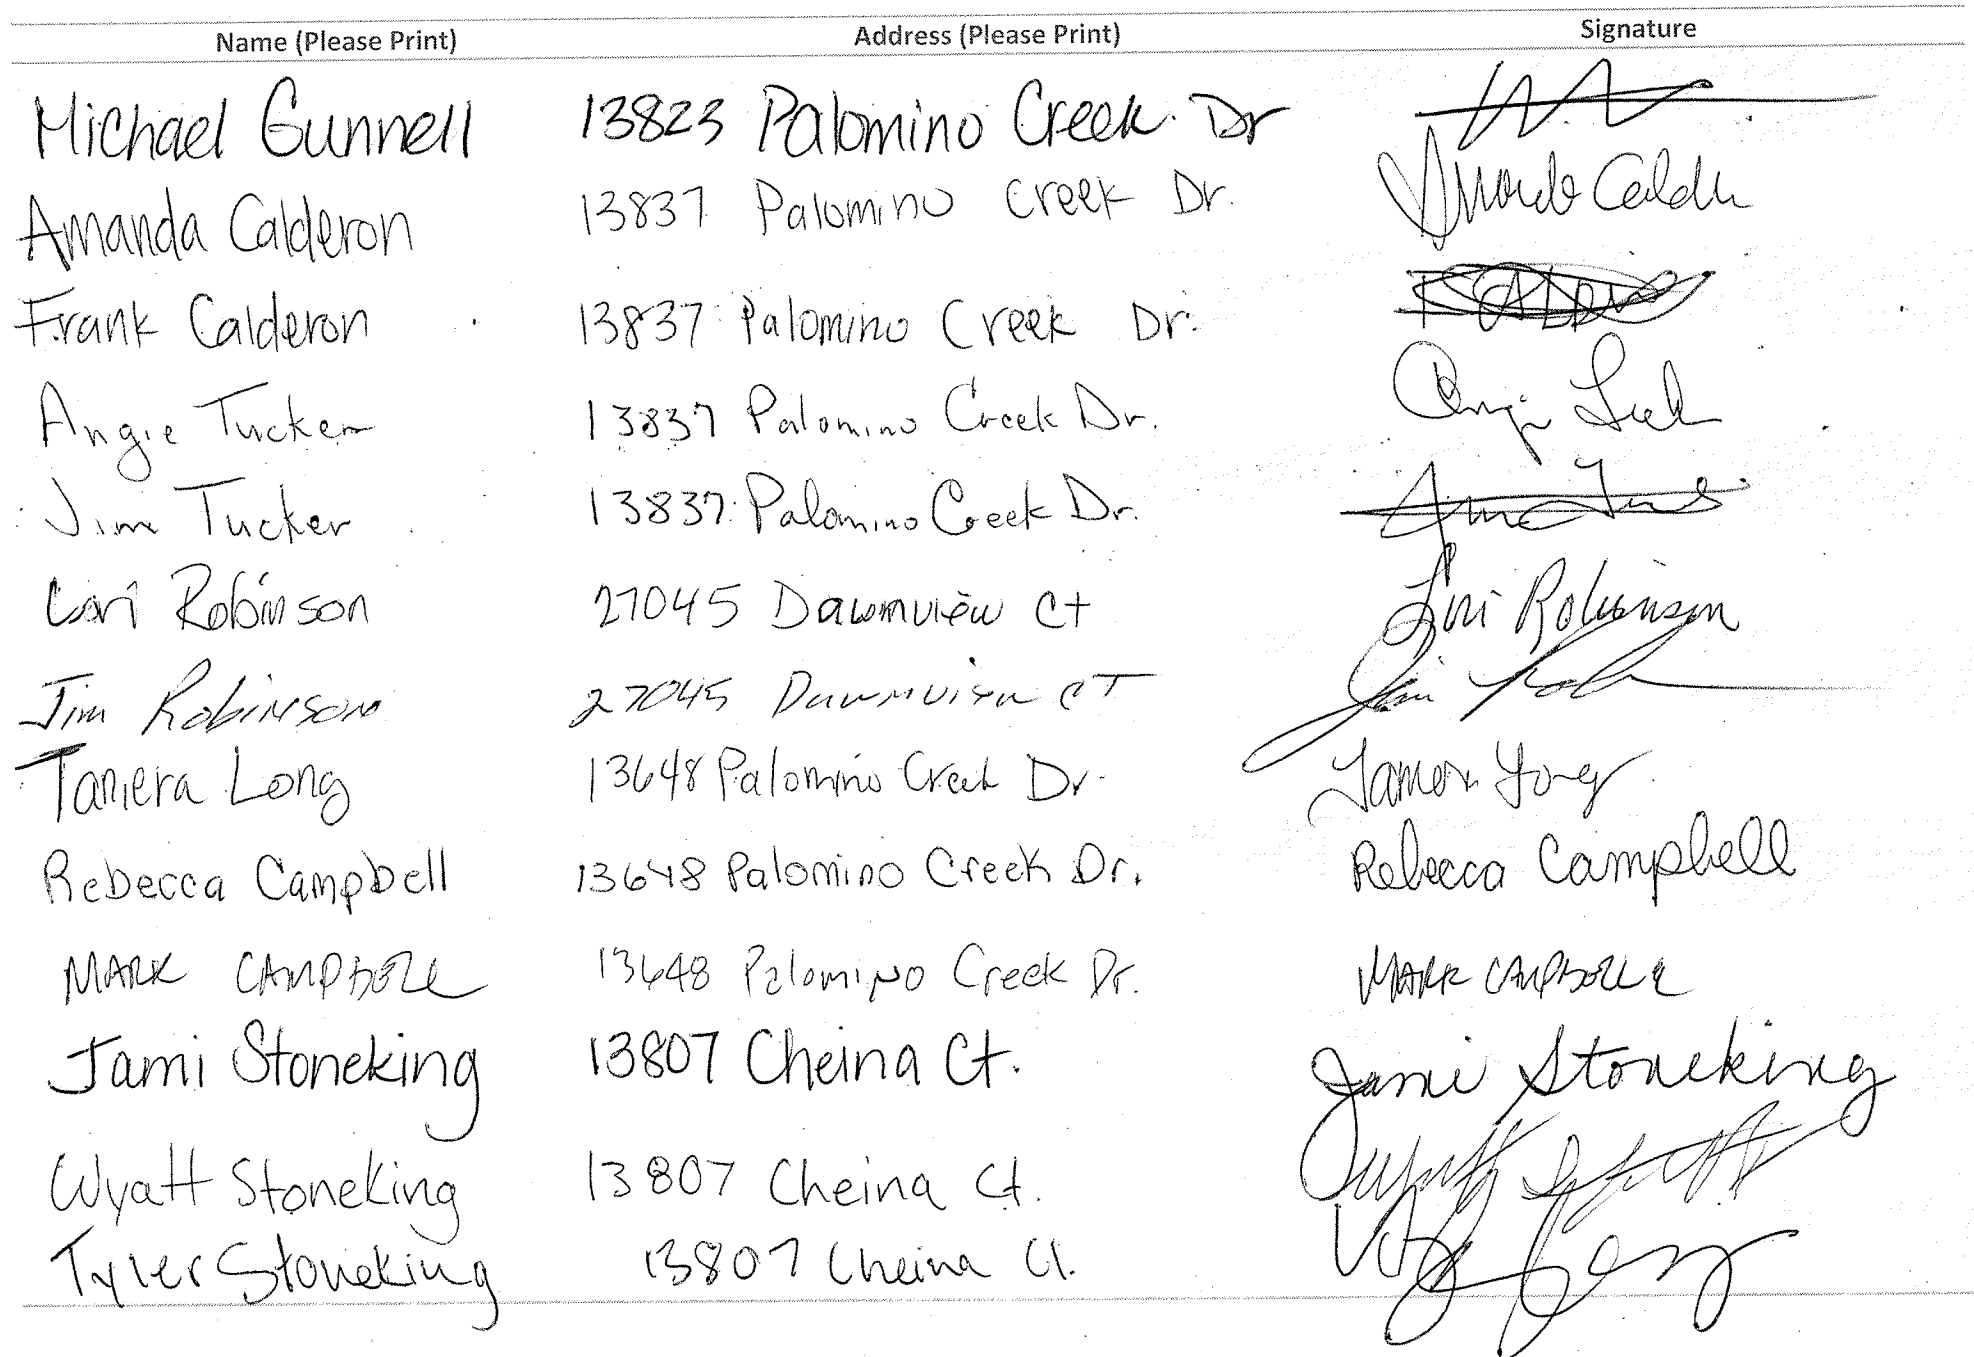 Name (Please Print) Address (Please Print) Signature
Michael Gunnell 13823 Palomino Creek Dr
Amanda Calderon 13837 Palomino Creek Dr.
Frank Calderon 13837 Palomino Creek Dr.
Angie Tucker 13837 Palomino Creek Dr.
Jim Tucker 13837 Palomino Creek Dr.
Lori Robinson 27045 Dawnview Ct Lori Robinson
Jim Robinson 27045 Dawnview CT Jim
Tamera Long 13648 Palomino Creek Dr.
Rebecca Campbell 13648 Palomino Creek Dr. Rebecca Campbell
MARK CAMPBELL 13648 Palomino Creek Dr. MARK CAMPBELL
Jami Stoneking 13807 Cheina Ct. Jami Stoneking
Wyatt Stoneking 13807 Cheina Ct.
Tyler Stoneking 13807 Cheina Ct.